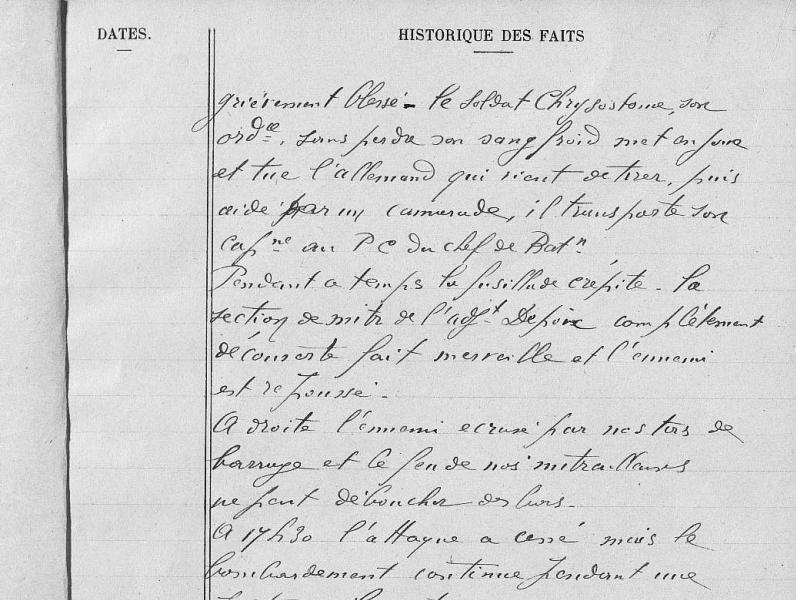 DATES.
HISTORIQUE DES FAITS
grièvement blessé - le soldat Chrysostome, son
ordce, sans perdre son sang froid met en joue
et tue l'allemand qui vient de tirer, puis
aidé par un camarade, il transporte son
capne au P C du chef de Batn
Pendant ce temps la fusillade crépite - la
section de mitr de l'adjt complètement
découverte fait merveille et l'ennemi
est repoussé -
A droite l'ennemi ecrasé par nos tirs de
barrage et le feu de nos mitrailleuses
ne peut déboucher des bois -
A 17h30 l'attaque a cessé mais le
bombardement continue pendant une